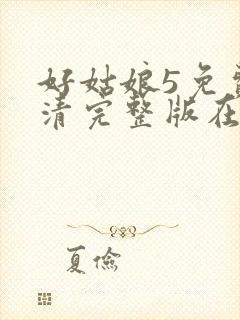 好姑娘5免费
清完整版在
夏俭